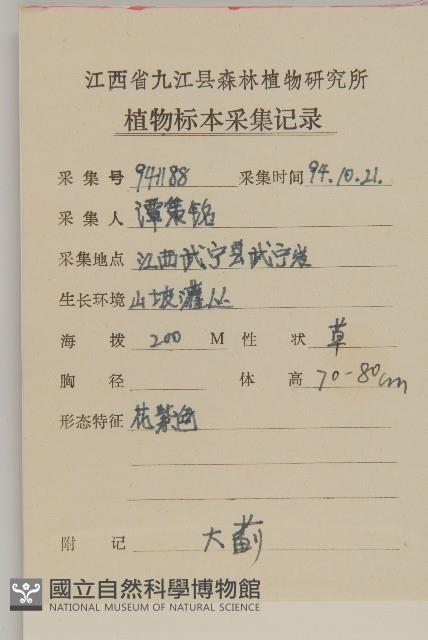 江西省九江县森林植物研究所
植物标本采集记录
采集号 941188 采集时间 94.10.21.
采集人 谭策铭
采集地点 江西武宁县武宁
生长环境 山坡灌丛
海拨 200 M 性状 草
胸径 体高 70-80cm
形态特征 花紫色
附记 大蓟
國立自然科學博物館
NATIONAL MUSEUM OF NATURAL SCIENCE